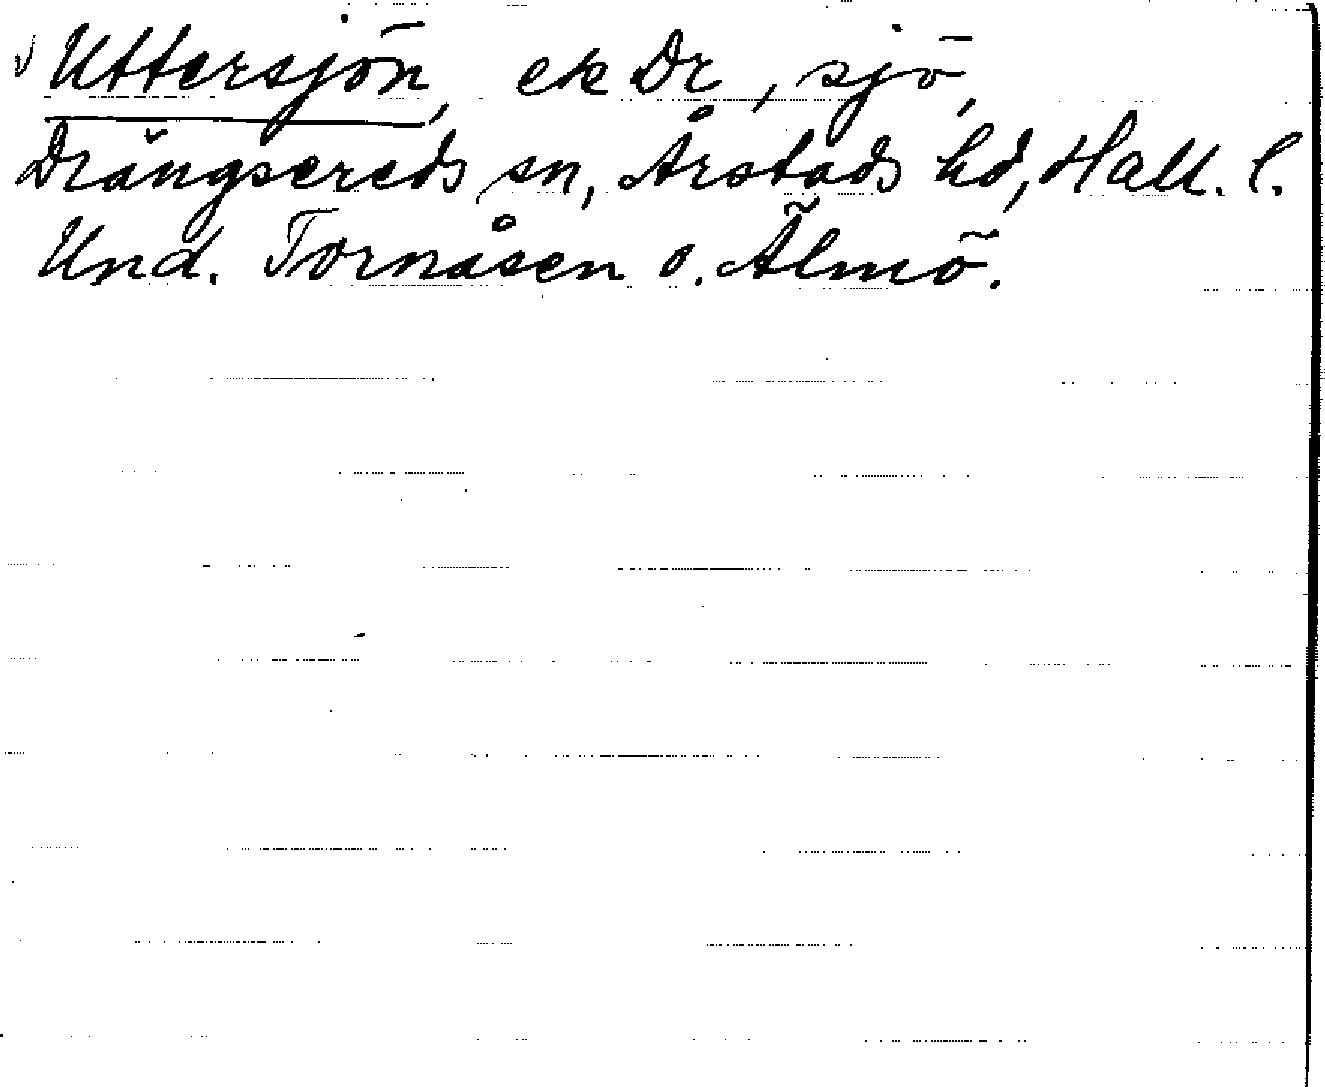 Uttersjön, ek Dr, sjö,
Drängsereds sn, Årstads hd, Hall. l.
Und. Tornåsen o. Älmö.